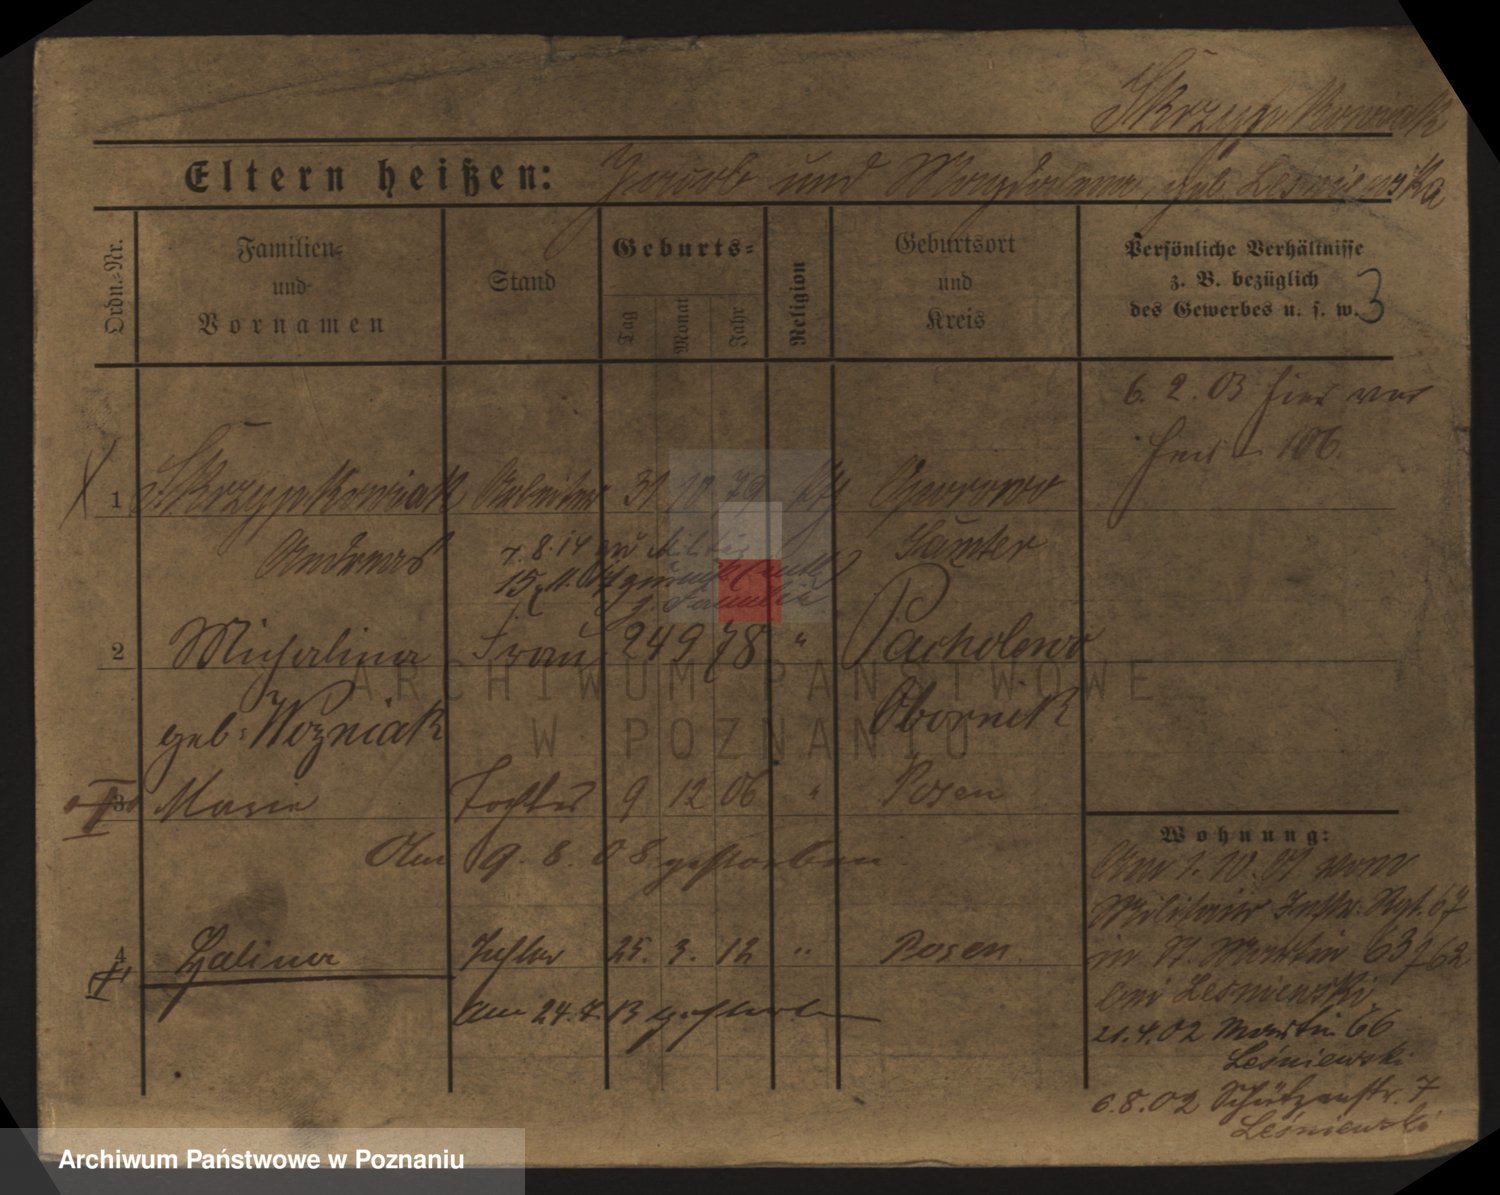 Skrzypkowiak
Eltern heißen: Jacob und Magdalena geb Lesniewska
Ordn.-Nr.
Familien-
und
Vornamen
Stand
Geburts-
Tag
Monat
Jahr
Religion
Geburtsort
und
Kreis
Persönliche Verhältnisse
z. B. bezüglich
des Gewerbes u. s. w.
3
6. 2. 03 hier
106.
1 Skrzypkowiak Arbeiter 31 10 79
Andreas Samter
7.8.14
15.
2 Michalina Frau 24 9 78 " Pacholewo
geb: Wozniak Obornik
3 Marie Tochter 9 12 06 " Posen
Am 9. 8. 08 gestorben
4 Halina Tochter 25. 3. 12 " Posen
Am 24.7.13 gestorben
Wohnung:
Am 1. 10. 01 vom
Militair Inftr. Rgt. 67
in St. Martin 63/62
bei Lesniewski
21.4.02 Martin 66
Leśniewski
6.8.02 Schützenstr. 7
Leśniewski
ARCHIWUM PAŃSTWOWE
W POZNANIU
Archiwum Państwowe w Poznaniu